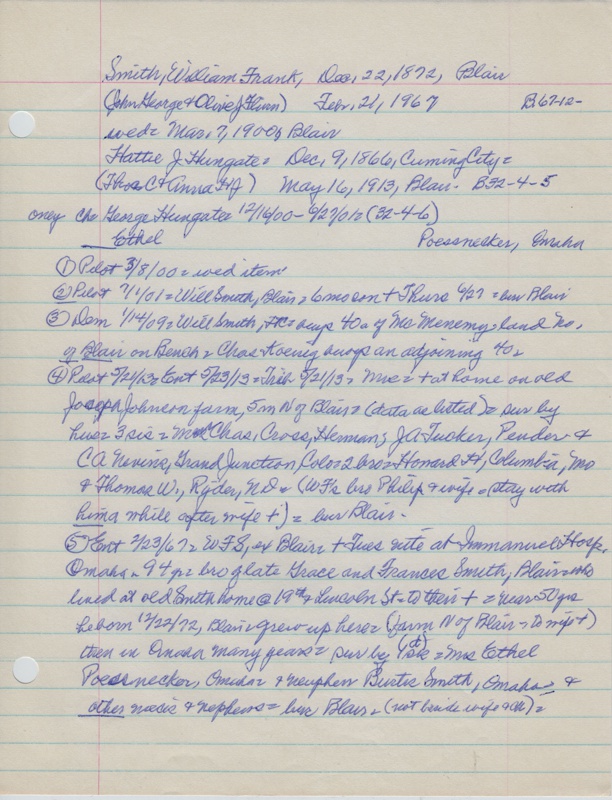 Smith, William Frank, Dec. 22, 1872, Blair
(John George & Olive J Flinn) Febr. 21, 1967 B67-12-
wed= Mar. 7, 1900, Blair
Hattie J Hungate= Dec. 9, 1866, Cuming City=
(Thos C & Anna H J) May 16, 1913, Blair- B32-4-5
only ch= George Hungate= 12/16/00- 6/27/01= (32-4-6)
Ethel Poessnecker, Omaha
① Pilot 3/8/00= wed item
② Pilot 7/1/01= Will Smith, Blair= 6 mo son + Thurs 6/27 = bur Blair
③ Dem 1/14/09= Will Smith, buys 40 a of Mc Menemy= land No.
of Blair on Bench= Chas Koenig buys an adjoining 40=
④ Pilot 5/21/13= Ent 5/23/13= Trib 5/21/13= Mrs= + at home on old
Joseph Johnson farm, 5 m N of Blair= (data as listed)= sur by
hus= 3 sis= Chas. Cross, Herman; J A Tucker, Pender &
C A Nevins, Grand Junction, Colo= 2 bro= Howard H, Columbia, Mo
& Thomas W., Ryder, N D= (WF's bro Philip & wife = stay with
him a while after wife +)= bur Blair-
⑤ Ent 2/23/67= WFS, ex Blair= + Tues nite at Immanuel Hosp,
Omaha= 94 yr= bro of late Grace and Frances Smith, Blair= who
lived at old Smith home @ 19th & Lincoln St= to their + = near 50 yrs
he born 12/22/72, Blair= grew up here= (farm N of Blair= to wife +)
then in Omaha many years= sur by = Mrs Ethel
Poessnecker, Omaha= & nephew Burtis Smith, Omaha= &
other & nephews= bur Blair= (not beside wife & ch)=